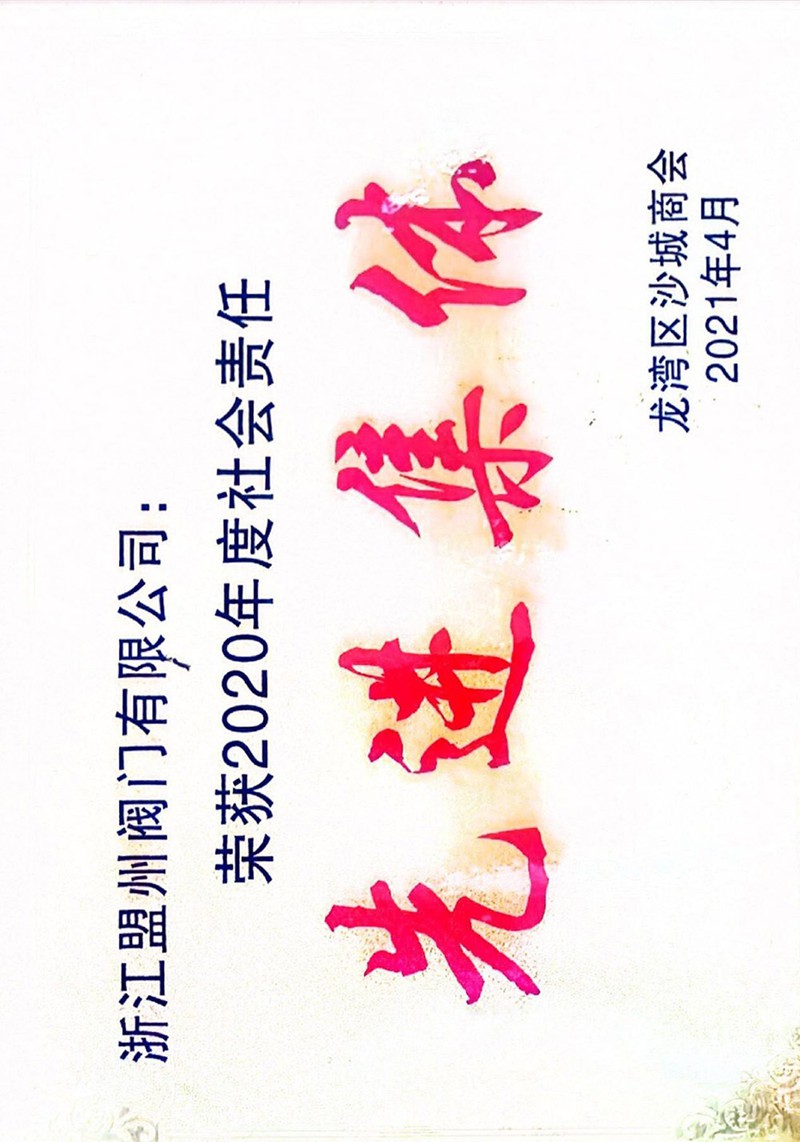 浙江盟州阀门有限公司：
荣获2020年度社会责任
先进集体
龙湾区沙城商会
2021年4月